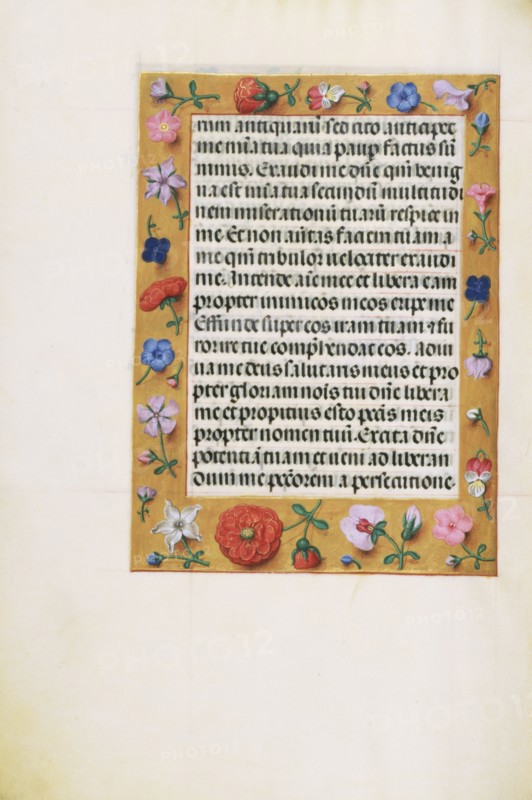 rum antiquarū sed cito anticipet
me mīa tua quia paup factus sū
nimis. Exaudi me dn̄e qm̄ benig
na est mīa tua secundū multitudi
nem miserationū tuarū respice in
me. Et non auertas faciem tuam a
me qm̄ tribulor uelociter exaudi
me. Intende aīe mee et libera eam
propter inimicos meos eripe me
Effunde super eos iram tuam ⁊ fu
rorire tue comp̄hendat eos. Adiu
ua me deus salutaris meus et pro
pter gloriam nōis tui dn̄e libera
me et propitius esto pc̄ās meis
propter nomen tuū. Excita dn̄e
potentiā tuam et ueni ad liberan
dum me pc̄c̄orem a persecutione